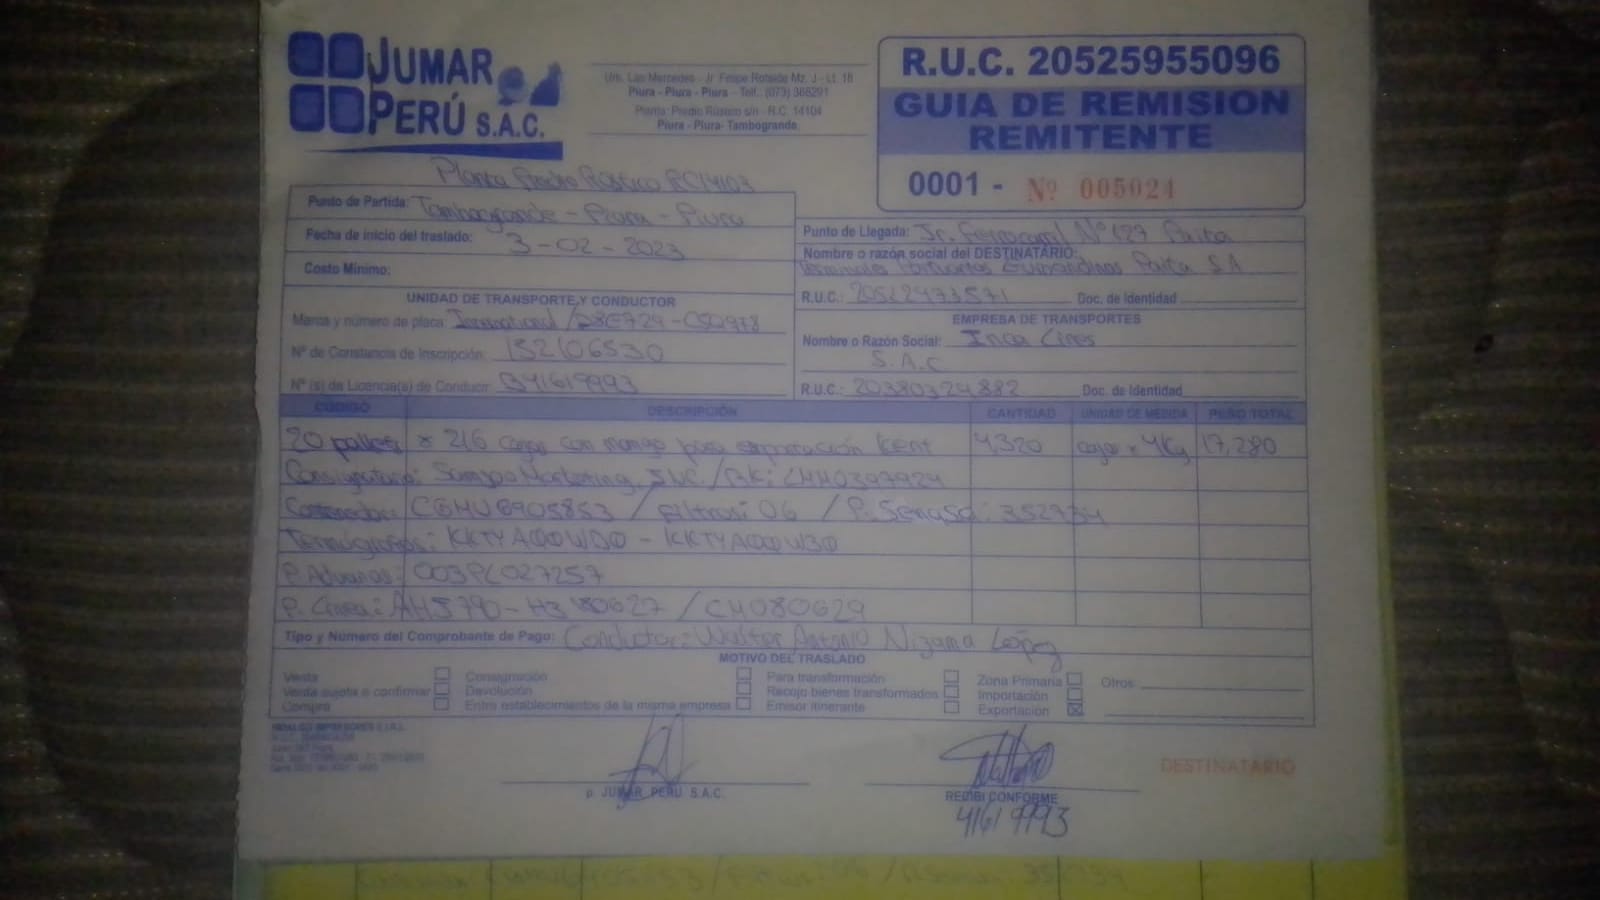 JUMAR
PERÚ S.A.C.
Urb. Las Mercedes - Jr. Felipe Mz. J - Lt. 18
Piura - Piura - Piura - Telf.: (073)
Planta: Predio Rústico s/n - R.C. 14104
Piura - Piura- Tambogrande
R.U.C. 20525955096
GUIA DE REMISION
REMITENTE
0001 - Nº 005024
Planta Predio Rústico RC14103
Punto de Partida: Tambogrande - Piura - Piura
Fecha de inicio del traslado: 3-02-2023
Costo Mínimo:
Punto de Llegada: Jr. Ferrocarril Nº 127 Paita
Nombre o razón social del DESTINATARIO:
Terminales Portuarios Euroandinos Paita S.A
R.U.C.: Doc. de Identidad
UNIDAD DE TRANSPORTE Y CONDUCTOR
Marca y número de placa: International
Nº de Constancia de Inscripción: 152106530
Nº (s) de Licencia(s) de Conducir: B41619993
EMPRESA DE TRANSPORTES
Nombre o Razón Social: Inca Lines
S.A.C
R.U.C.: 20380324882 Doc. de Identidad
CÓDIGO DESCRIPCIÓN CANTIDAD UNIDAD DE MEDIDA PESO TOTAL
20 pallets x 216 cajas con mango para exportación Kent 4,320 cajas x 4Kg 17,280
Consignatario: Marketing, /BK:
Contenedor: /Filtros: 06 / P. Senasa: 352734
Termógrafos: KKTYA00WD0 - KKTYA00W30
P. Aduanas: 003PL027257
P. Línea: / CH080629
Tipo y Número del Comprobante de Pago: Conductor: Walter Antonio Nizama López
MOTIVO DEL TRASLADO
Venta Consignación Para transformación Zona Primaria Otros
Venta sujeta a confirmar Devolución Recojo bienes transformados Importación
Compra Entre establecimientos de la misma empresa Emisor itinerante Exportación
p. JUMAR PERÚ S.A.C.
RECIBI CONFORME
41619993
DESTINATARIO